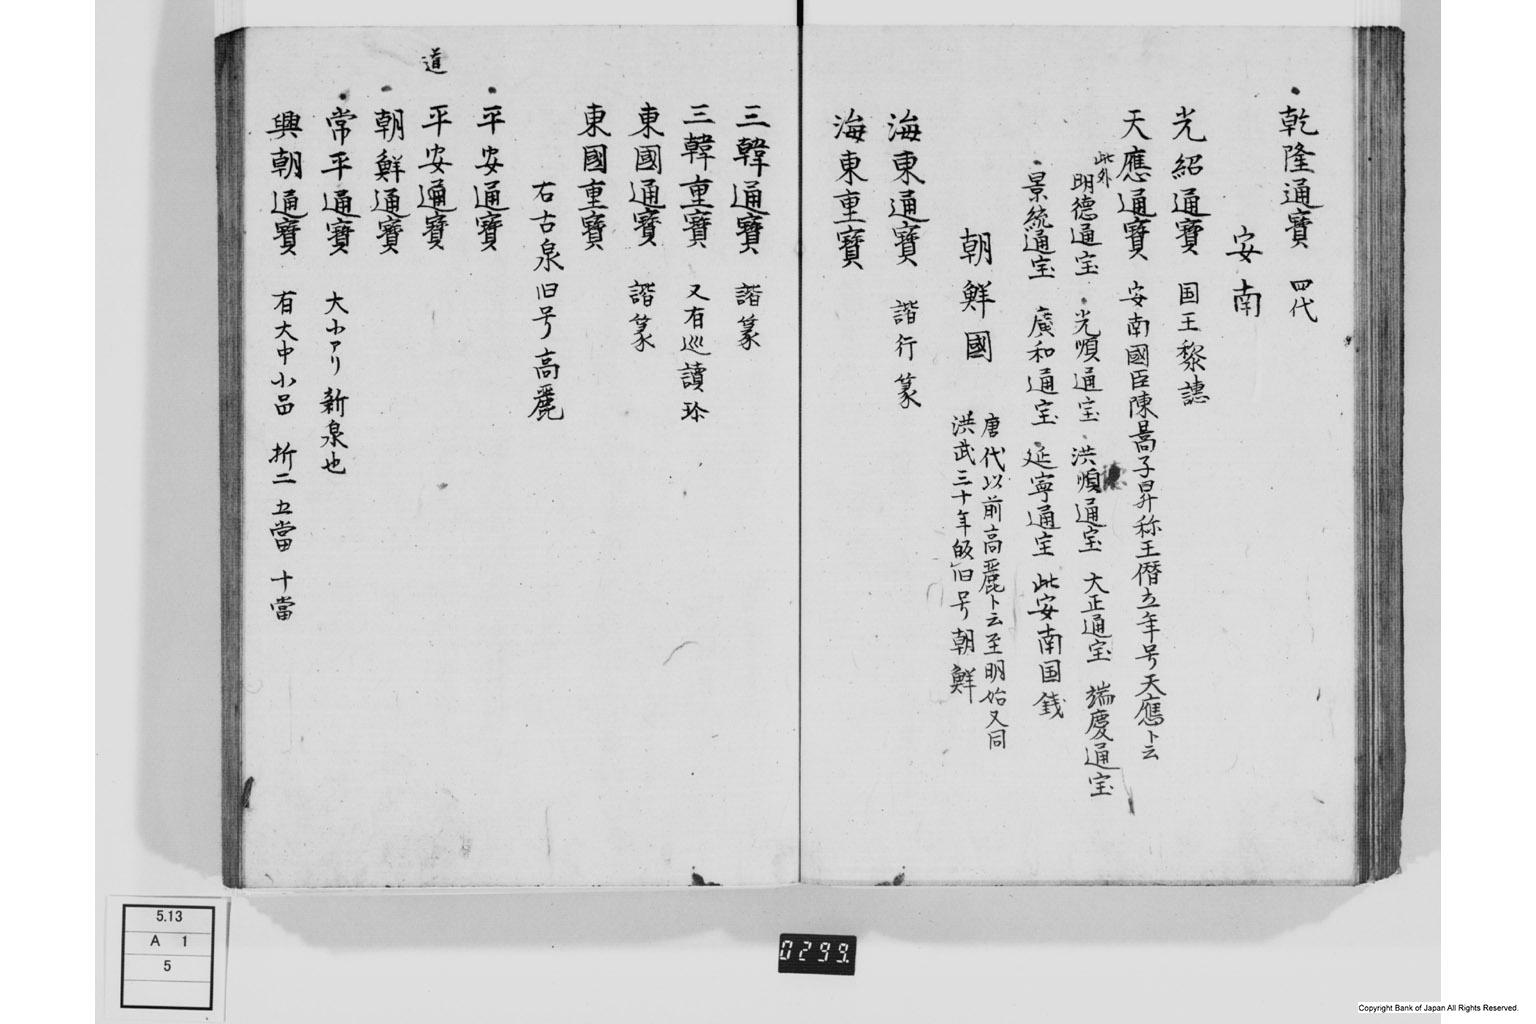 乾隆通寳 四代
安南
光紹通寳 国王黎譓
天應通寳 安南國臣陳暠子昇称王僭立年号天應ト云
此外
明德通宝 光順通宝 洪順通宝 大正通宝 端慶通宝
景統通宝 廣和通宝 延寧通宝 此安南国錢
朝鮮國
唐代以前高麗ト云至明始又同
洪武三十年皈旧号朝鮮
海東通寳 諧行篆
海東重寳
三韓通寳 諧篆
三韓重寳 又有巡讀珎
東國通寳 諧篆
東國重寳
右古泉旧号高麗
平安通寳
道
平安通寳
朝鮮通寳
常平通寳 大小アリ 新泉也
興朝通寳 有大中小品 折二 五當 十當
5.13
A 1
5
0299.
Copyright Bank of Japan All Rights Reserved.